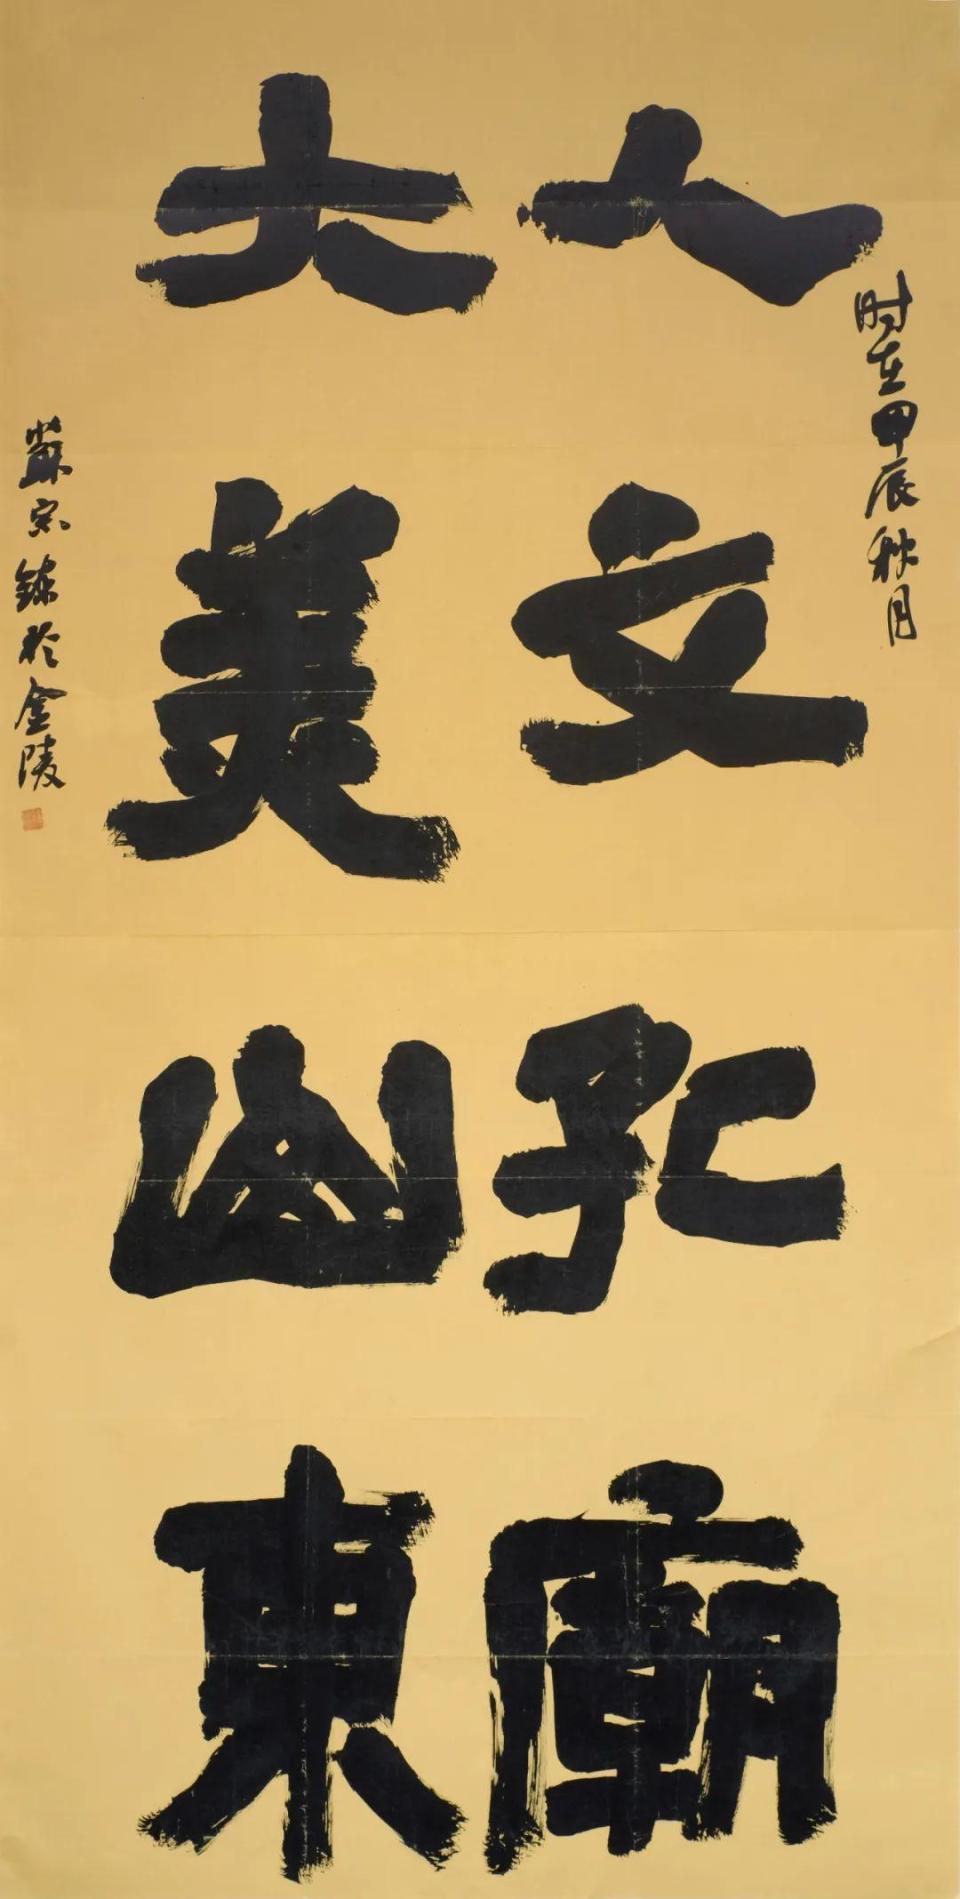 时在甲辰秋月
人立孔廟
大美山東
蘇宗於金陵